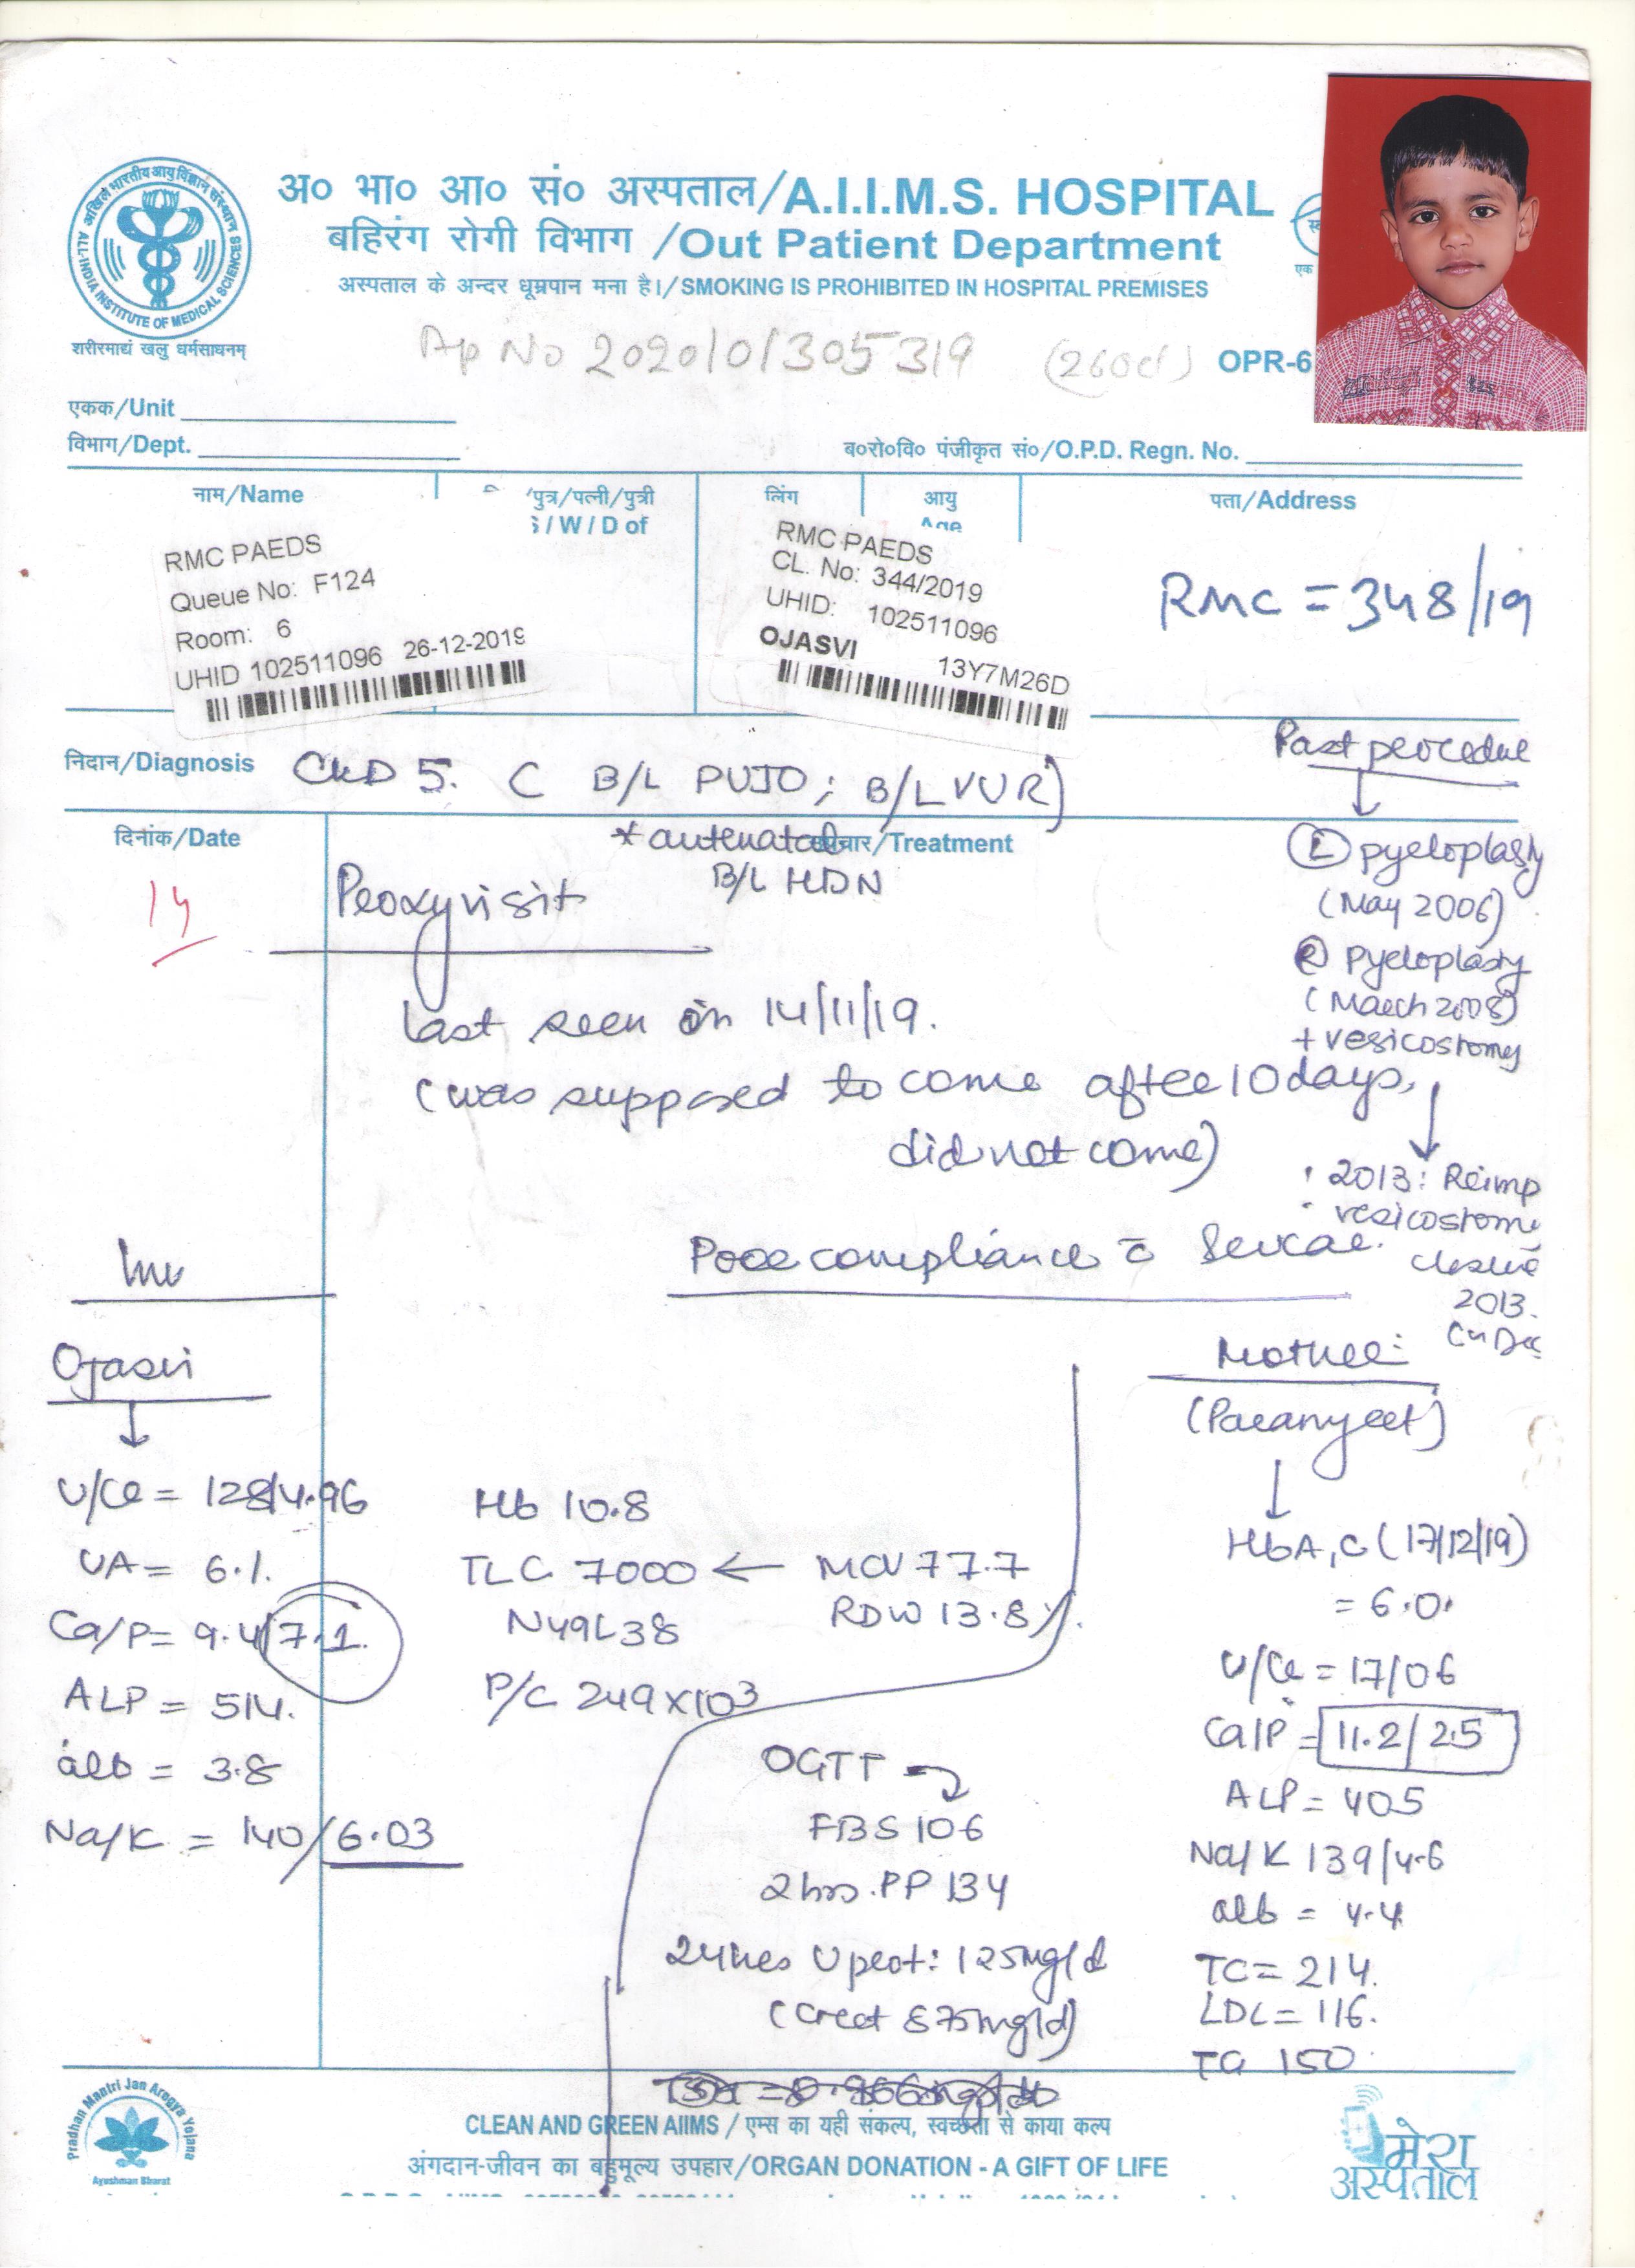 अ० भा० आ० सं० अस्पताल/A.I.I.M.S. HOSPITAL
बहिरंग रोगी विभाग /Out Patient Department
अस्पताल के अन्दर धूम्रपान मना है।/SMOKING IS PROHIBITED IN HOSPITAL PREMISES
अखिल भारतीय आयुर्विज्ञान संस्थान
ALL-INDIA INSTITUTE OF MEDICAL SCIENCES
शरीरमाद्यं खलु धर्मसाधनम्
एक
Ap No 2020/0/305319 (260d) OPR-6
एकक/Unit
विभाग/Dept.
ब०रो०वि० पंजीकृत सं०/O.P.D. Regn. No.
नाम/Name
पुत्र/पत्नी/पुत्री
/ W / D of
लिंग
आयु
Age
पता/Address
RMC PAEDS
Queue No: F124
Room: 6
UHID 102511096 26-12-2019
RMC PAEDS
CL. No: 344/2019
UHID: 102511096
OJASVI
13Y7M26D
RMC = 348/19
निदान/Diagnosis CKD 5. C B/L PUJO; B/L VUR)
दिनांक/Date
/Treatment
* antenatal
B/L HDN
Past procedure
(L) pyeloplasty
(May 2006)
(R) pyeloplasty
(March 2008)
+ vesicostomy
2013: Reimp
vesicostomy
closure
2013.
14
Proxy visit
last seen on 14/11/19.
(was supposed to come after 10 days,
did not come)
Poor compliance c̄
Inv
Ojasvi
U/Cr = 128/4.96
UA = 6.1.
Ca/P = 9.4/7.1.
ALP = 514.
alb = 3.8
Na/K = 140/6.03
Hb 10.8
TLC 7000 ← MCV 77.7
RDW 13.8%.
N49L38
P/C 249x10³
OGTT
FBS 106
2hrs. PP 134
24hrs Uprot: 125mg/d
(Creat 875mg/d)
Mother:
(Paramjeet)
HbA,C (17/12/19)
= 6.0.
U/Cr = 17/06
Ca/P = 11.2/2.5
ALP = 405
Na/K 139/4.6
alb = 4.4
TC = 214.
LDL = 116.
TG 150
Pradhan Mantri Jan Arogya Yojana
Ayushman Bharat
CLEAN AND GREEN AIIMS / एम्स का यही संकल्प, स्वच्छता से काया कल्प
अंगदान-जीवन का बहुमूल्य उपहार/ORGAN DONATION - A GIFT OF LIFE
मेरा
अस्पताल